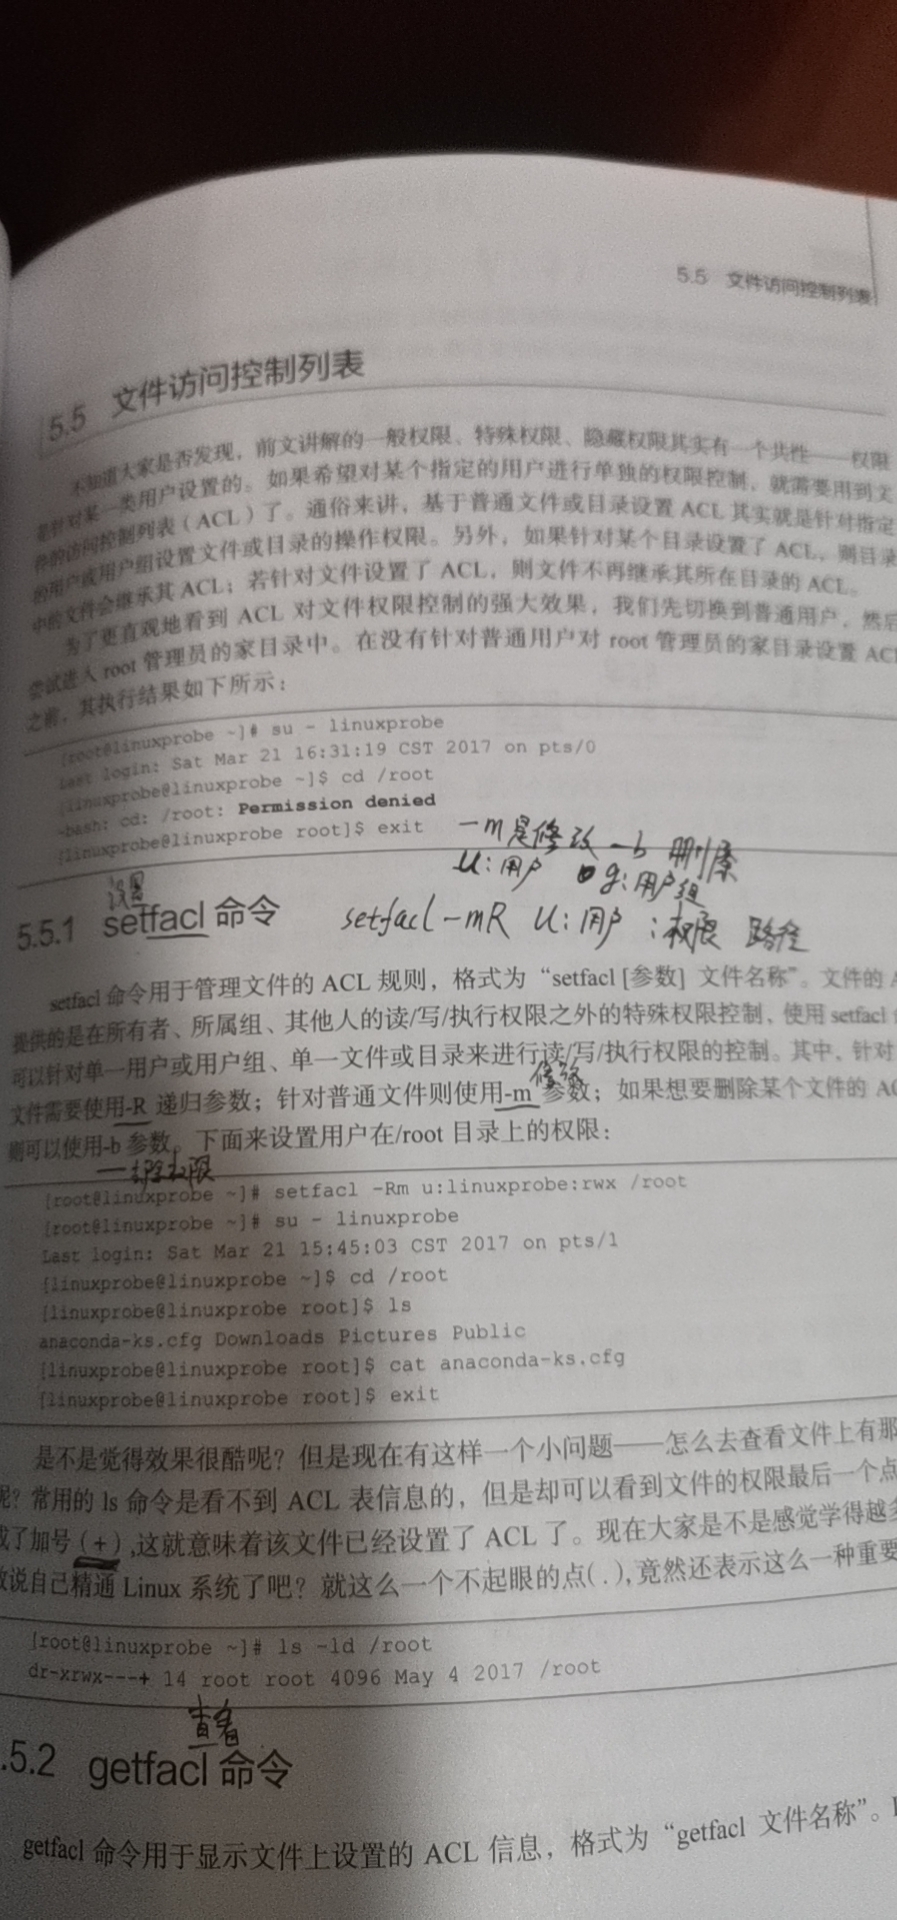 5.5 文件访问控制列表
5.5 文件访问控制列表
不知道大家是否发现，前文讲解的一般权限、特殊权限、隐藏权限其实有一个共性——权限
是针对某一类用户设置的。如果希望对某个指定的用户进行单独的权限控制，就需要用到文
件的访问控制列表（ACL）了。通俗来讲，基于普通文件或目录设置 ACL 其实就是针对指定
的用户或用户组设置文件或目录的操作权限。另外，如果针对某个目录设置了 ACL，则目录
中的文件会继承其 ACL；若针对文件设置了 ACL，则文件不再继承其所在目录的 ACL。
为了更直观地看到 ACL 对文件权限控制的强大效果，我们先切换到普通用户，然后
尝试进入 root 管理员的家目录中。在没有针对普通用户对 root 管理员的家目录设置 AC
之前，其执行结果如下所示：
[root@linuxprobe ~]# su - linuxprobe
Last login: Sat Mar 21 16:31:19 CST 2017 on pts/0
[linuxprobe@linuxprobe ~]$ cd /root
-bash: cd: /root: Permission denied
[linuxprobe@linuxprobe root]$ exit
-m是修改 -b 删除
u:用户 g:用户组
设置
5.5.1 setfacl 命令
setfacl -mR u:用户:权限 路径
setfacl 命令用于管理文件的 ACL 规则，格式为“setfacl [参数] 文件名称”。文件的 A
提供的是在所有者、所属组、其他人的读/写/执行权限之外的特殊权限控制，使用 setfacl
可以针对单一用户或用户组、单一文件或目录来进行读/写/执行权限的控制。其中，针对
修改
文件需要使用-R 递归参数；针对普通文件则使用-m 参数；如果想要删除某个文件的 AC
则可以使用-b 参数。下面来设置用户在/root 目录上的权限：
[root@linuxprobe ~]# setfacl -Rm u:linuxprobe:rwx /root
[root@linuxprobe ~]# su - linuxprobe
Last login: Sat Mar 21 15:45:03 CST 2017 on pts/1
[linuxprobe@linuxprobe ~]$ cd /root
[linuxprobe@linuxprobe root]$ ls
anaconda-ks.cfg Downloads Pictures Public
[linuxprobe@linuxprobe root]$ cat anaconda-ks.cfg
[linuxprobe@linuxprobe root]$ exit
是不是觉得效果很酷呢？但是现在有这样一个小问题——怎么去查看文件上有那
呢？常用的 ls 命令是看不到 ACL 表信息的，但是却可以看到文件的权限最后一个点
成了加号（+）,这就意味着该文件已经设置了 ACL 了。现在大家是不是感觉学得越多
敢说自己精通 Linux 系统了吧？就这么一个不起眼的点(.),竟然还表示这么一种重要
[root@linuxprobe ~]# ls -ld /root
dr-xrwx---+ 14 root root 4096 May 4 2017 /root
查看
.5.2 getfacl 命令
getfacl 命令用于显示文件上设置的 ACL 信息，格式为“getfacl 文件名称”。